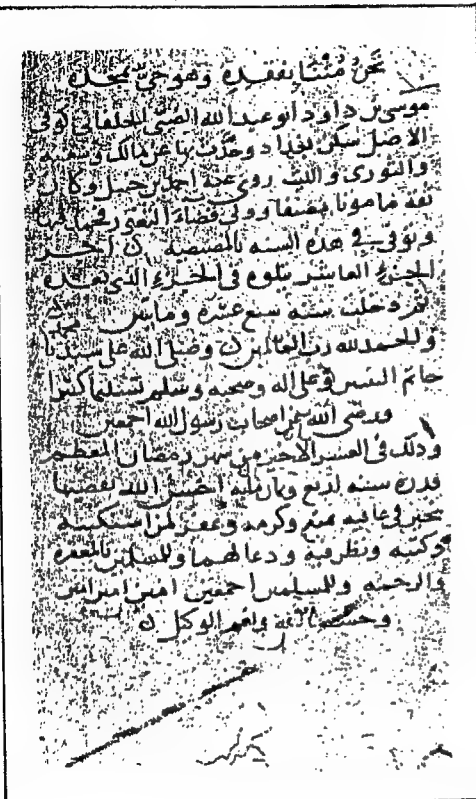 نحن متنا بفقده وهو حي بمجده
موسى بن داود ابو عبد الله الضبي الخلقاني كوفي
الاصل سكن بغداد وحدث بها عن مالك وشعبة
والثوري والليث روى عنه احمد بن حنبل وكان
ثقة مامونا مصنفا وولي قضاء الثغور فحمد فيها
وتوفي في هذه السنه بالمصيصه ن اخر
الجزء العاشر يتلوه في الجزء الذي بعده
ثم دخلت سنه سبع عشره وماتين
والحمد لله رب العالمين ن وصلى الله على سيدنا محمد
خاتم النبيين وعلى اله وصحبه وسلم تسليما كثيرا
ورضي الله عن اصحاب رسول الله اجمعين
وذلك في العشر الاخير من شهر رمضان المعظم
قدره سنه اربع وثمان احسن الله تقضيها
بخير وعافيه بمنه وكرمه وغفر لمن استكتبه
وكتبه ونظر فيه ودعا لهما وللمسلمين بالمغفره
والرحمه وللمسلمين اجمعين امين امين امين
وحسبنا الله ونعم الوكيل ن